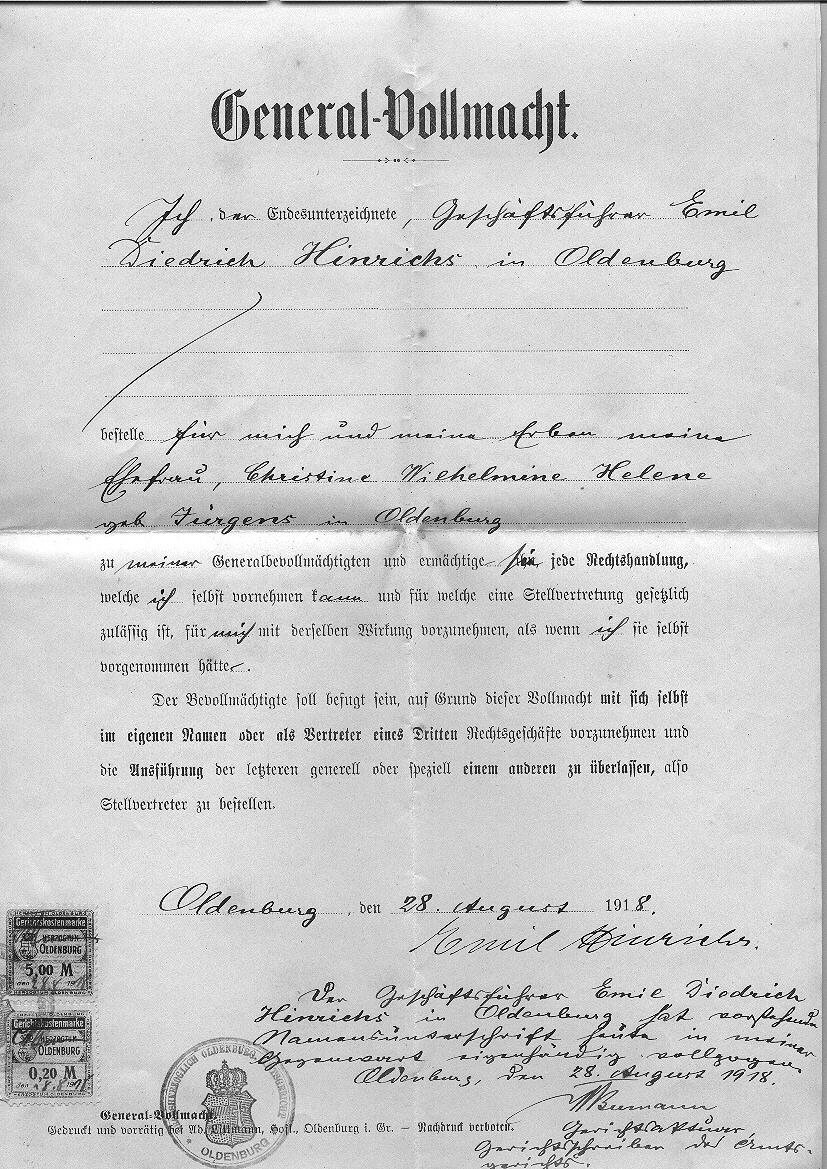 General-Vollmacht.
Ich der Endesunterzeichnete, Geschäftsführer Emil
Diedrich Hinrichs in Oldenburg
bestelle für mich und meine Erben meine
Ehefrau, Christine Wilhelmine Helene
geb Jürgens in Oldenburg
zu meiner Generalbevollmächtigten und ermächtige sie jede Rechtshandlung,
welche ich selbst vornehmen kann und für welche eine Stellvertretung gesetzlich
zulässig ist, für mich mit derselben Wirkung vorzunehmen, als wenn ich sie selbst
vorgenommen hätte.
Der Bevollmächtigte soll befugt sein, auf Grund dieser Vollmacht mit sich selbst
im eigenen Namen oder als Vertreter eines Dritten Rechtsgeschäfte vorzunehmen und
die Ausführung der letzteren generell oder speziell einem anderen zu überlassen, also
Stellvertreter zu bestellen.
Oldenburg, den 28. August 1918.
Emil Hinrichs.
Gerichtskostenmarke
HERZOGTUM
OLDENBURG
5,00 M
den 28.8.1918
Gerichtskostenmarke
HERZOGTUM
OLDENBURG
0,20 M
den 28.8.1918
Der Geschäftsführer Emil Diedrich
Hinrichs in Oldenburg hat vorstehende
Namensunterschrift heute in meiner
Gegenwart eigenhändig vollzogen.
Oldenburg, den 28. August 1918.
Gerichtsaktuar,
Gerichtsschreiber des Amts-
gerichts.
GROSSHERZOGLICH OLDENBURG. AMTSGERICHT
OLDENBURG
General-Vollmacht.
Gedruckt und vorrätig bei Ad. Littmann, Hofl., Oldenburg i. Gr. — Nachdruck verboten.